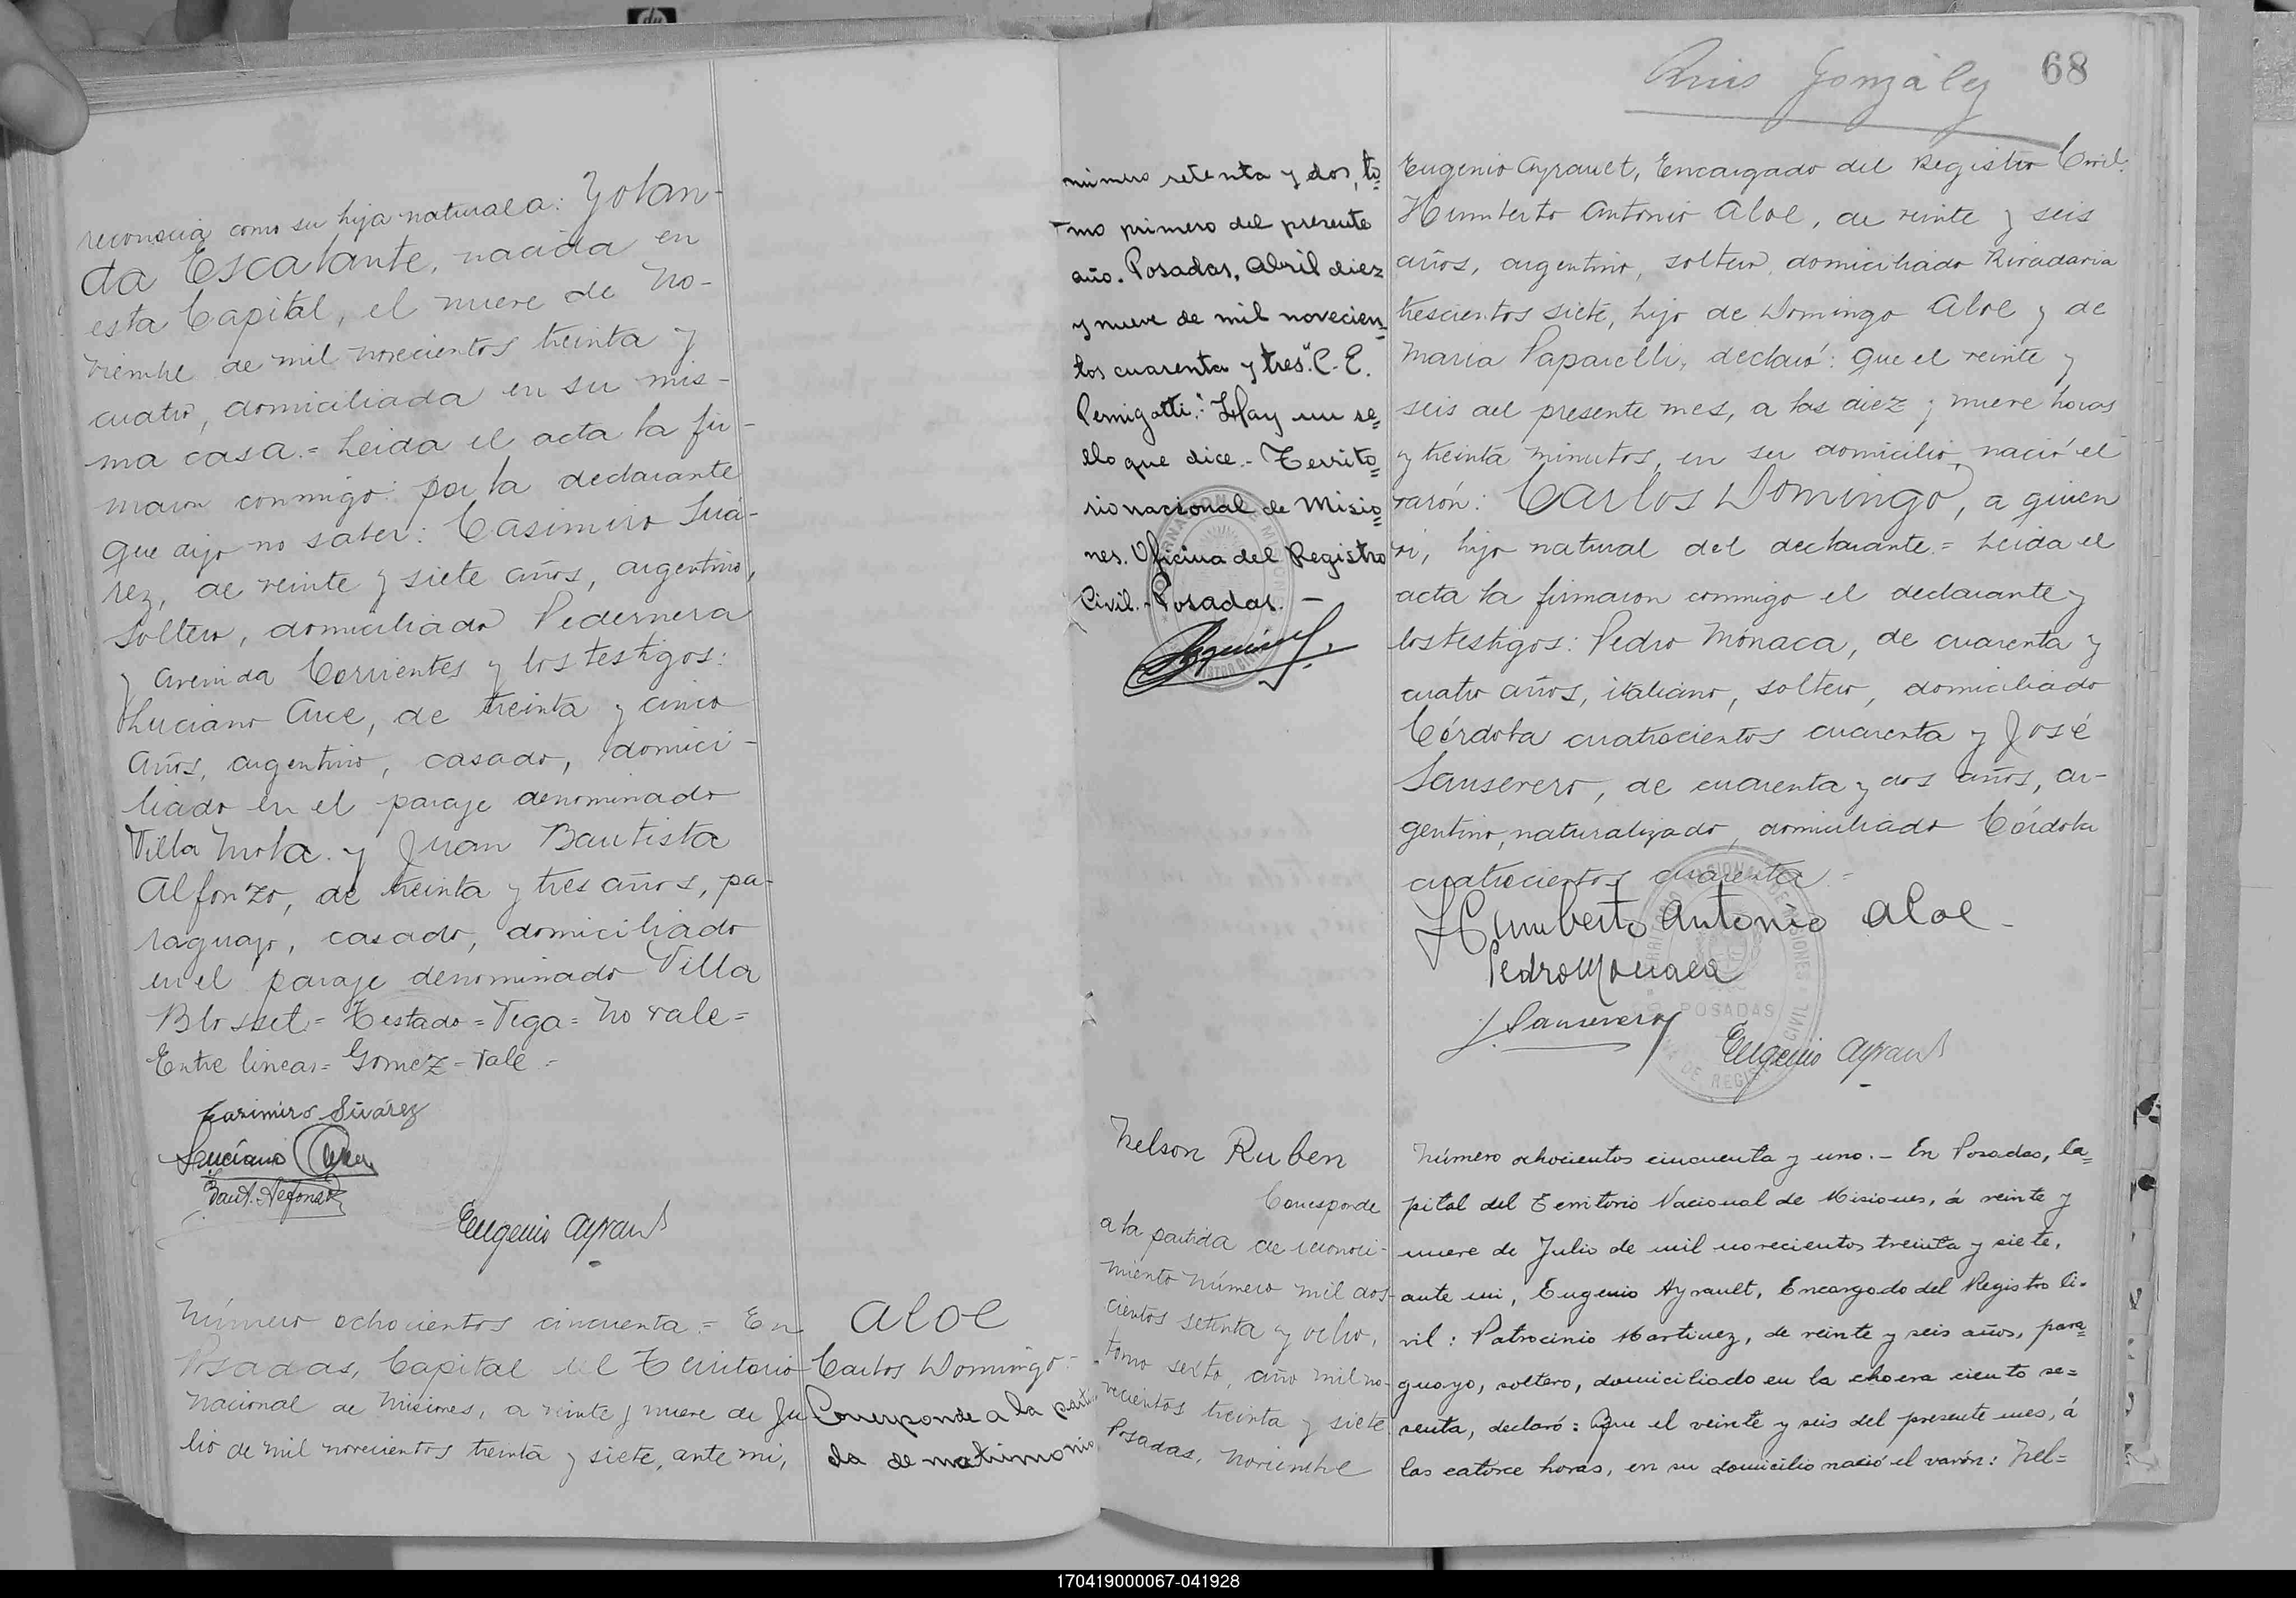 reconocia como su hija natural a: Yolan-
da Escalante, nacida en
esta Capital, el nueve de No-
viembre de mil novecientos treinta y
cuatro, domiciliada en su mis-
ma casa.= Leida el acta la fir-
maron conmigo: por la declarante
que dijo no saber: Casimiro Suá-
rez, de veinte y siete años, argentino,
soltero, domiciliado Pedernera
y Avenida Corrientes y los testigos:
Luciano Arce, de treinta y cinco
años, argentino, casado, domici-
liado en el paraje denominado
Villa Mota y Juan Bautista
Alfonzo, de treinta y tres años, pa-
raguayo, casado, domiciliado
en el paraje denominado Villa
Blosset = Testado = Vega = No vale =
Entre lineas = Gomez = vale =
Casimiro Súarez
Luciano Arce
Baut. Alfonso
Eugenio Ayrault
Número ochocientos cincuenta = En
Posadas, Capital del Territorio
Nacional de Misiones, a veinte y nueve de Ju
lio de mil novecientos treinta y siete, ante mi,
Aloe
Carlos Domingo =
Corresponde a la parti
da de matrimonio
número setenta y dos, to=
mo primero del presente
año. Posadas, Abril diez
y nueve de mil novecien=
tos cuarenta y tres". C. E.
Pernigotti." Hay un se=
llo que dice.- Territo=
rio nacional de Misio=
nes. Oficina del Registro
Civil.- Posadas. -
Ruis González
68
Eugenio Ayrault, Encargado del Registro Civil:
Humberto Antonio Aloe, de veinte y seis
años, argentino, soltero, domiciliado Rivadavia
trescientos siete, hijo de Domingo Aloe y de
Maria Paparelli, declaró: que el veinte y
seis del presente mes, a las diez y nueve horas
y treinta minutos, en su domicilio, nació el
varón: Carlos Domingo, a quien
vi, hijo natural del declarante = Leida el
acta la firmaron conmigo el declarante y
los testigos: Pedro Mónaca, de cuarenta y
cuatro años, italiano, soltero, domiciliado
Córdoba cuatrocientos cuarenta y José
Sanserero, de cuarenta y dos años, ar-
gentino, naturalizado, domiciliado Córdoba
cuatrocientos cuarenta =
Humberto Antonio Aloe -
Pedro Monaca
J. Sansevero
POSADAS
Eugenio Ayrault
Nelson Ruben
Corresponde
a la partida de reconoci-
miento número mil dos-
cientos setenta y ocho,
tomo sexto, año mil no-
vecientos treinta y siete
Posadas, Noviembre
Número ochocientos cincuenta y uno.- En Posadas, Ca=
pital del Territorio Nacional de Misiones, á veinte y
nueve de Julio de mil novecientos treinta y siete,
ante mi, Eugenio Ayrault, Encargado del Registro Ci-
vil: Patrocinio Martinez, de veinte y seis años, para=
guayo, soltero, domiciliado en la chacra ciento se=
senta, declaró: Que el veinte y seis del presente mes, á
las catorce horas, en su domicilio nació el varón: Nel=
170419000067-041928